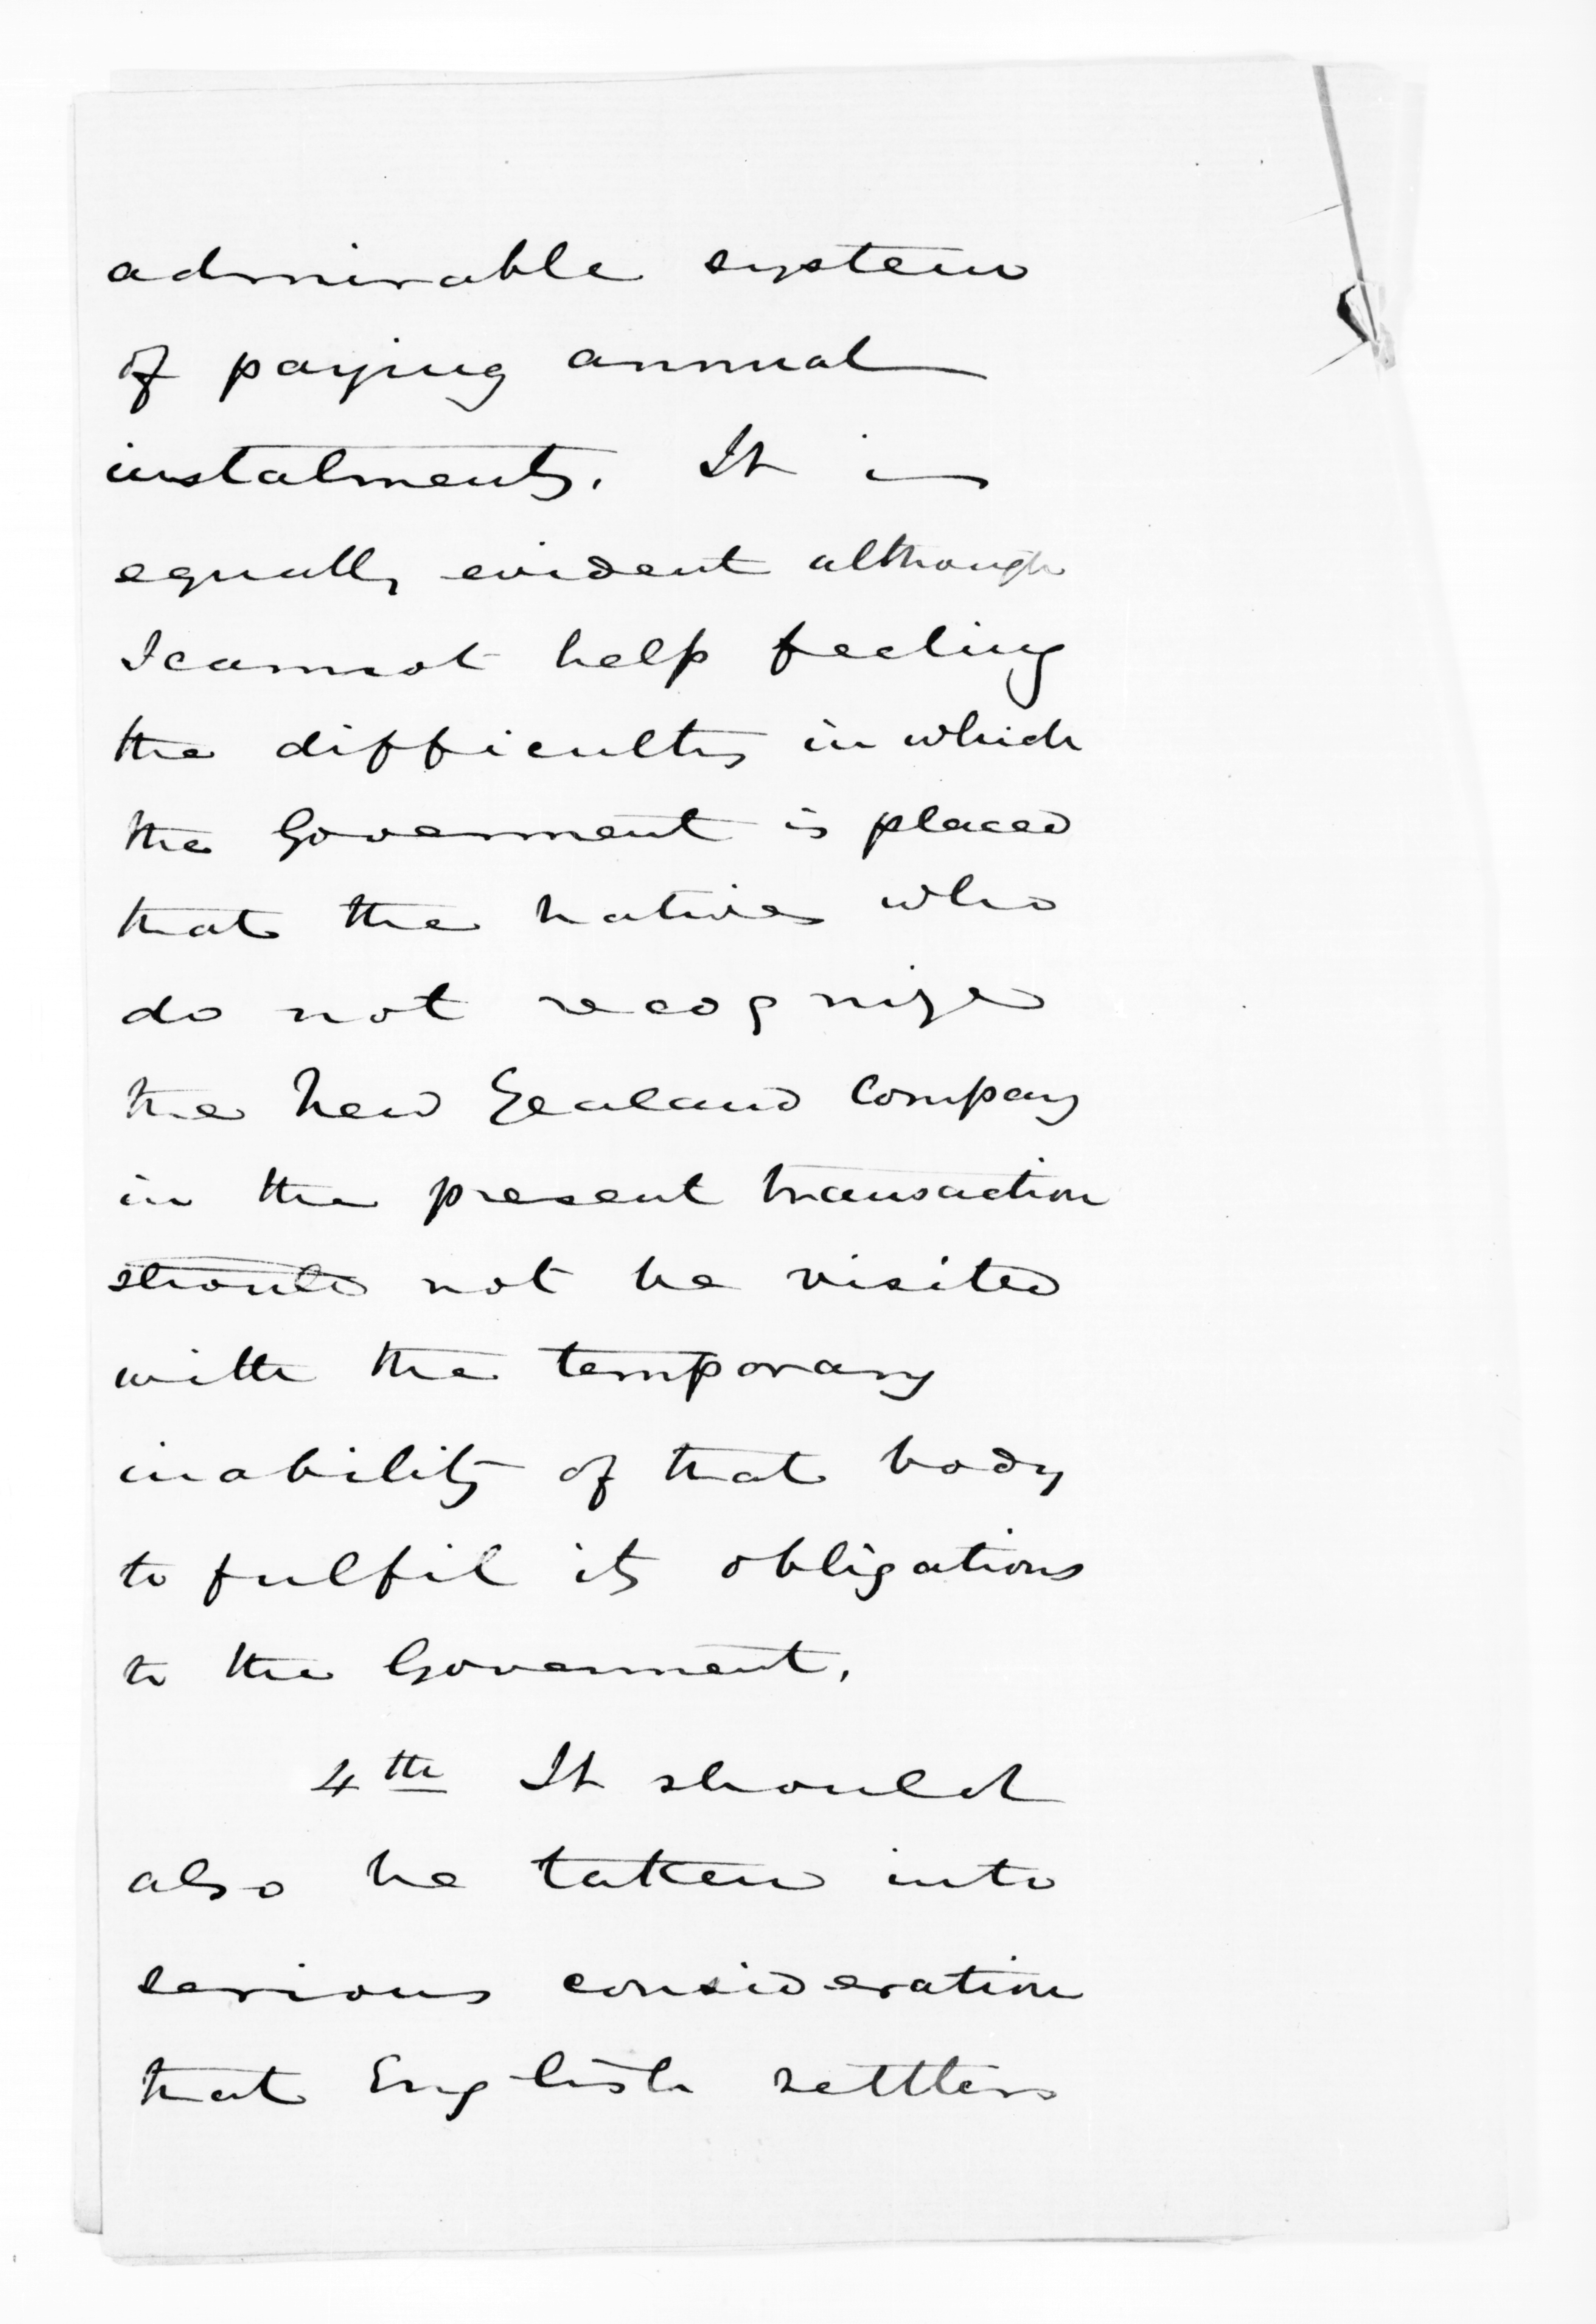 admirable system
of paying annual
instalments. It is
equally evident although
I cannot help feeling
the difficulty in which
the Goverment is placed
that the natives who
do not recognize
the New Zealand Company
in the present transaction
should not be visited
with the temporary
inability of that body
to fulfil its obligations
to the Goverment.
4th It should
also be taken into
serious consideration
that English settlers